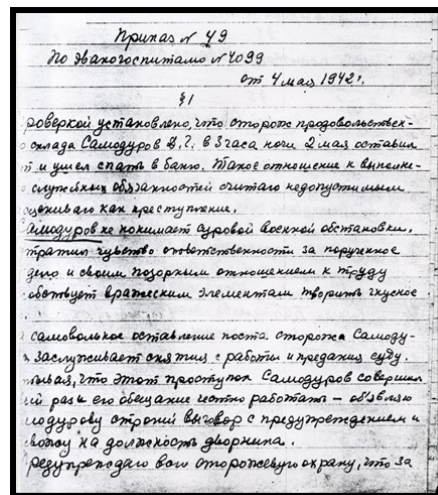 Приказ № 49
По Эвакогоспиталю № 4099
от 4 мая 1942 г.
§ 1
роверкой установлено, что сторож продовольствен-
склада Самодуров в 3 часа ночи 2 мая оставил
т и ушел спать в баню. Такое отношение к выполне-
служебных обязанностей считаю недопустимым
оцениваю как преступление.
амодуров не понимает суровой военной обстановки,
тратил чувство ответственности за порученное
дело и своим позорным отношением к труду
обствует вражеским элементам творить гнусное
самовольное оставление поста сторожа Самоду-
заслуживает снятия с работы и предания суду.
тывая, что этот проступок Самодуров совершил
ый раз и его обещание честно работать – объявляю
модурову строгий выговор с предупреждением и
вожу на должность дворника.
редупреждаю всю сторожевую охрану, что за